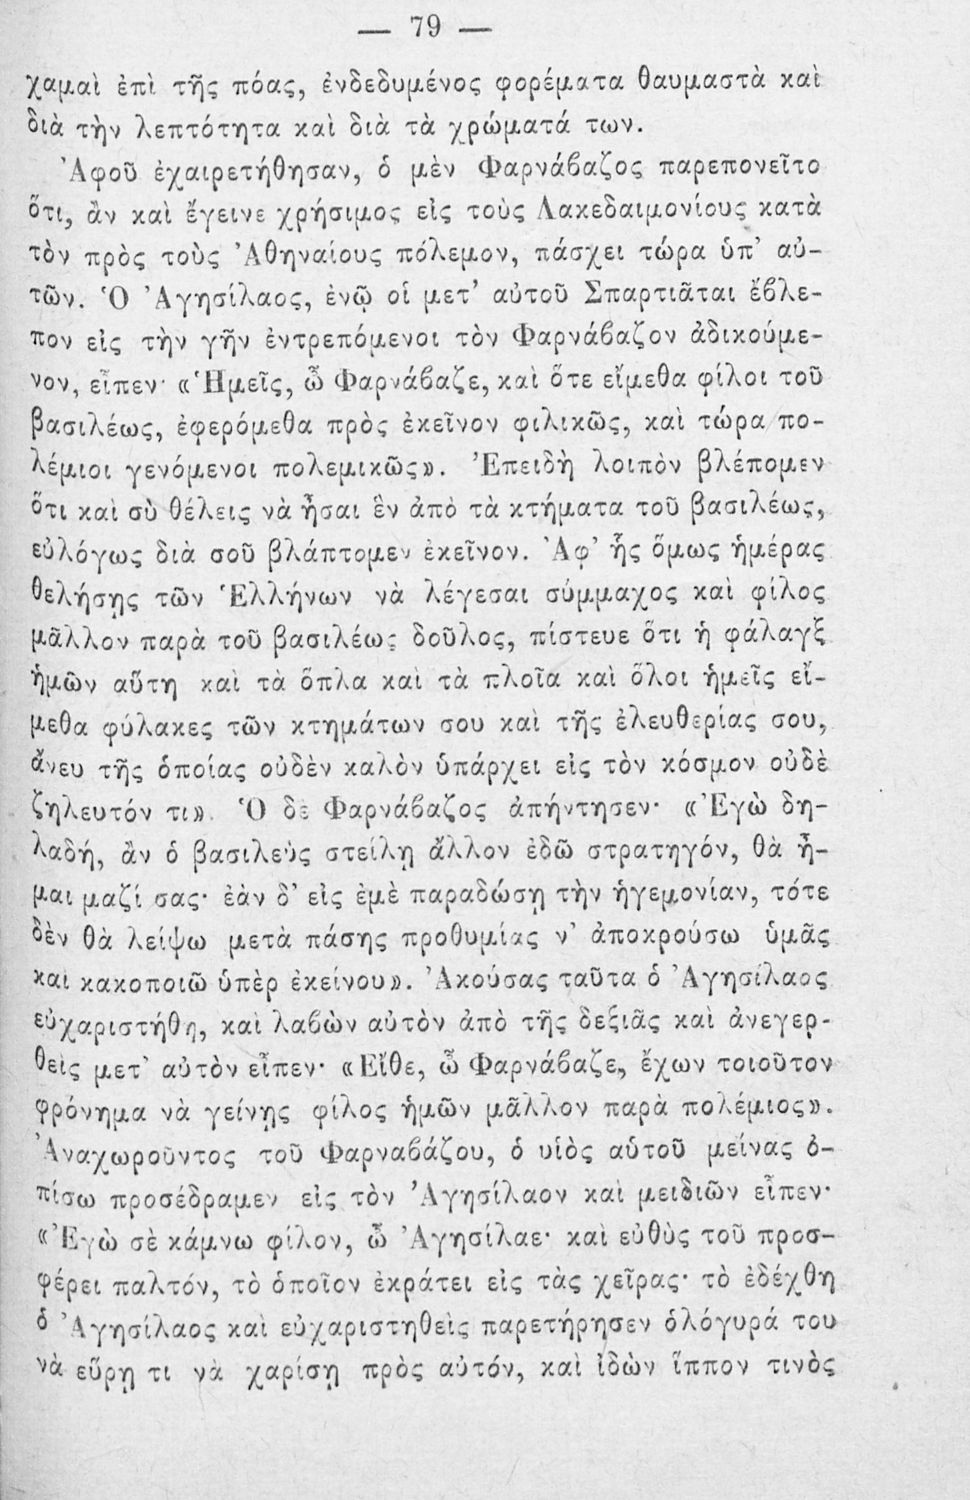 — 79 —
χαμαὶ ἐπὶ τῆς πόας, ἐνδεδυμένος φορέματα θαυμαστὰ καὶ
διὰ τὴν λεπτότητα καὶ διὰ τὰ χρώματά των.
Ἀφοῦ ἐχαιρετήθησαν, ὁ μὲν Φαρνάβαζος παρεπονεῖτο
ὅτι, ἂν καὶ ἔγεινε χρήσιμος εἰς τοὺς Λακεδαιμονίους κατὰ
τὸν πρὸς τοὺς Ἀθηναίους πόλεμον, πάσχει τώρα ὑπ’ αὐ-
τῶν. Ὁ Ἀγησίλαος, ἐνῷ οἱ μετ’ αὐτοῦ Σπαρτιᾶται ἔβλε-
πον εἰς τὴν γῆν ἐντρεπόμενοι τὸν Φαρνάβαζον ἀδικούμε-
νον, εἶπεν· «Ἡμεῖς, ὦ Φαρνάβαζε, καὶ ὅτε εἴμεθα φίλοι τοῦ
βασιλέως, ἐφερόμεθα πρὸς ἐκεῖνον φιλικῶς, καὶ τώρα πο-
λέμιοι γενόμενοι πολεμικῶς». Ἐπειδὴ λοιπὸν βλέπομεν
ὅτι καὶ σὺ θέλεις νὰ ἦσαι ἓν ἀπὸ τὰ κτήματα τοῦ βασιλέως,
εὐλόγως διὰ σοῦ βλάπτομεν ἐκεῖνον. Ἀφ’ ἧς ὅμως ἡμέρας
θελήσῃς τῶν Ἑλλήνων νὰ λέγεσαι σύμμαχος καὶ φίλος
μᾶλλον παρὰ τοῦ βασιλέως δοῦλος, πίστευε ὅτι ἡ φάλαγξ
ἡμῶν αὕτη καὶ τὰ ὅπλα καὶ τὰ πλοῖα καὶ ὅλοι ἡμεῖς εἴ-
μεθα φύλακες τῶν κτημάτων σου καὶ τῆς ἐλευθερίας σου,
ἄνευ τῆς ὁποίας οὐδὲν καλὸν ὑπάρχει εἰς τὸν κόσμον οὐδὲ
ζηλευτόν τι». Ὁ δὲ Φαρνάβαζος ἀπήντησεν· «Ἐγὼ δη-
λαδή, ἂν ὁ βασιλεὺς στείλῃ ἄλλον ἐδῶ στρατηγόν, θὰ ἦ-
μαι μαζί σας· ἐὰν δ’ εἰς ἐμὲ παραδώσῃ τὴν ἡγεμονίαν, τότε
δὲν θὰ λείψω μετὰ πάσης προθυμίας ν’ ἀποκρούσω ὑμᾶς
καὶ κακοποιῶ ὑπὲρ ἐκείνου». Ἀκούσας ταῦτα ὁ Ἀγησίλαος
εὐχαριστήθη, καὶ λαβὼν αὐτὸν ἀπὸ τῆς δεξιᾶς καὶ ἀνεγερ-
θεὶς μετ’ αὐτὸν εἶπεν· «Εἴθε, ὦ Φαρνάβαζε, ἔχων τοιοῦτον
φρόνημα νὰ γείνῃς φίλος ἡμῶν μᾶλλον παρὰ πολέμιος».
Ἀναχωροῦντος τοῦ Φαρναβάζου, ὁ υἱὸς αὐτοῦ μείνας ὀ-
πίσω προσέδραμεν εἰς τὸν Ἀγησίλαον καὶ μειδιῶν εἶπεν·
«Ἐγὼ σὲ κάμνω φίλον, ὦ Ἀγησίλαε· καὶ εὐθὺς τοῦ προσ-
φέρει παλτόν, τὸ ὁποῖον ἐκράτει εἰς τὰς χεῖρας· τὸ ἐδέχθη
ὁ Ἀγησίλαος καὶ εὐχαριστηθεὶς παρετήρησεν ὁλόγυρά του
νὰ εὕρῃ τι νὰ χαρίσῃ πρὸς αὐτόν, καὶ ἰδὼν ἵππον τινὸς